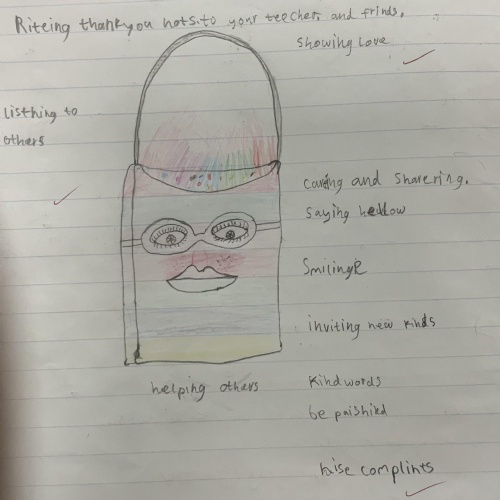 Riteing thankyou nots.to your teecher, and frinds,
showing Love
Listhing to
others
caring and sharering.
saying hellow
Smilinge
inviting new kinds
helping others
Kind words
be paishind
nise complints